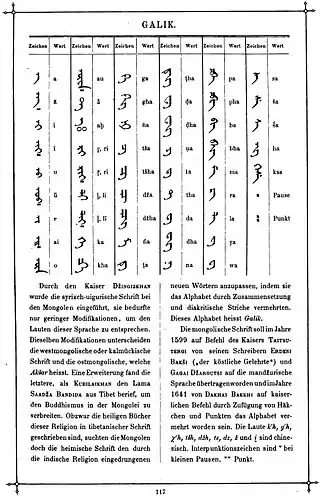 GALIK.
Zeichen Wert Zeichen Wert Zeichen Wert Zeichen Wert Zeichen Wert Zeichen Wert
a au ga ṭha pa sa
ā ã gha ḍa pha ša
i aḥ ṅa ḍha ba ṡa
ī ṛ, ri tša ṇa bha ha
u ṝ, rī tšha ta ma ksa
ū ḷ, li dža tha ra Pause
e ḹ, lī džha da la Punkt
ai ka ña dha ya
o kha ṭa na wa
Durch den Kaiser DŽINGIZKHAN
wurde die syrisch-uigurische Schrift bei
den Mongolen eingeführt, sie bedurfte
nur geringer Modifikationen, um den
Lauten dieser Sprache zu entsprechen.
Dieselben Modifikationen unterscheiden
die westmongolische oder kalmükische
Schrift und die ostmongolische, welche
Akkar heisst. Eine Erweiterung fand die
letztere, als KUBILAIKHAN den Lama
SAADŽA BANDIDA aus Tibet berief, um
den Buddhismus in der Mongolei zu
verbreiten. Obzwar die heiligen Bücher
dieser Religion in tibetanischer Schrift
geschrieben sind, suchten die Mongolen
doch die heimische Schrift den durch
die indische Religion eingedrungenen
neuen Wörtern anzupassen, indem sie
das Alphabet durch Zusammensetzung
und diakritische Striche vermehrten.
Dieses Alphabet heisst Galik.
Die mongolische Schrift soll im Jahre
1599 auf Befehl des Kaisers TAITSU-
TERGI von seinen Schreibern ERDENI
BAKŠI („der köstliche Gelehrte“) und
GAGAI DŽARGUTSI auf die mandžurische
Sprache übertragen worden und im Jahre
1641 durch DAKHAI BAKTSHI auf kaiser-
lichen Befehl durch Zufügung von Häk-
chen und Punkten das Alphabet ver-
mehrt worden sein. Die Laute k'h, g'h,
χ'h, tšh, džh, ts, dz, ž und ị sind chine-
sisch. Interpunktionszeichen sind ° bei
kleinen Pausen. °° Punkt.
117